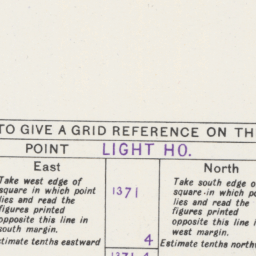 TO GIVE A GRID REFERENCE ON
POINT LIGHT HO.
East
Take west edge of
square in which point
lies and read the
figures printed
opposite this line in
south margin.
Estimate tenths eastward
1371
4
1371 4
North
Take south edge
square in which
lies and read the
figures printed
opposite this line
west margin.
Estimate tenths